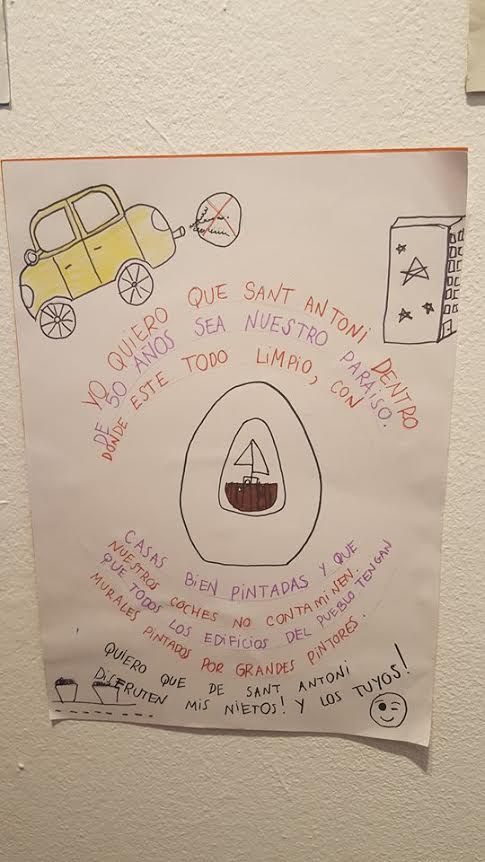 YO QUIERO QUE SANT ANTONI DENTRO
DE 50 AÑOS SEA NUESTRO PARAISO.
DONDE ESTE TODO LIMPIO, CON
CASAS BIEN PINTADAS Y QUE
NUESTROS COCHES NO CONTAMINEN.
QUE TODOS LOS EDIFICIOS DEL PUEBLO TENGAN
MURALES PINTADOS POR GRANDES PINTORES.
QUIERO QUE DE SANT ANTONI
DISFRUTEN MIS NIETOS! Y LOS TUYOS!